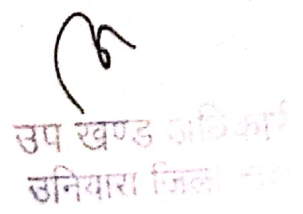 उप खण्ड अधिकारी
उनियारा जिला